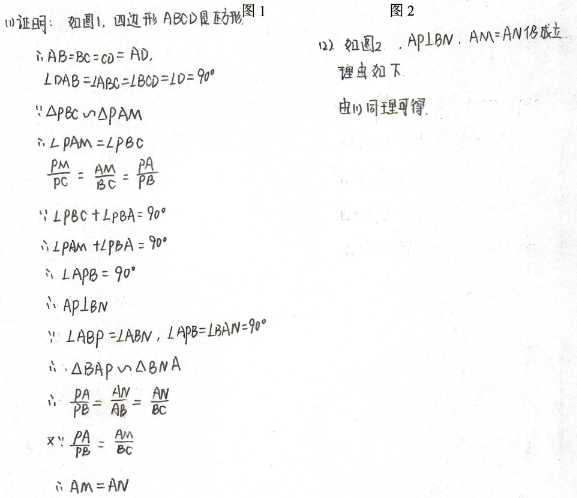 图1
(1)证明：如图1，四边形ABCD是正方形
∴AB=BC=CD=AD,
∠DAB=∠ABC=∠BCD=∠D=90°
∵△PBC∽△PAM
∴∠PAM=∠PBC
PM/PC = AM/BC = PA/PB
∵∠PBC+∠PBA=90°
∴∠PAM+∠PBA=90°
∴∠APB=90°
∴AP⊥BN
∵∠ABP=∠ABN, ∠APB=∠BAN=90°
∴△BAP∽△BNA
∴PA/PB = AN/AB = AN/BC
又∵PA/PB = AM/BC
∴AM=AN
图2
(2) 如图2，AP⊥BN, AM=AN仍成立
理由如下.
由(1)同理可得.